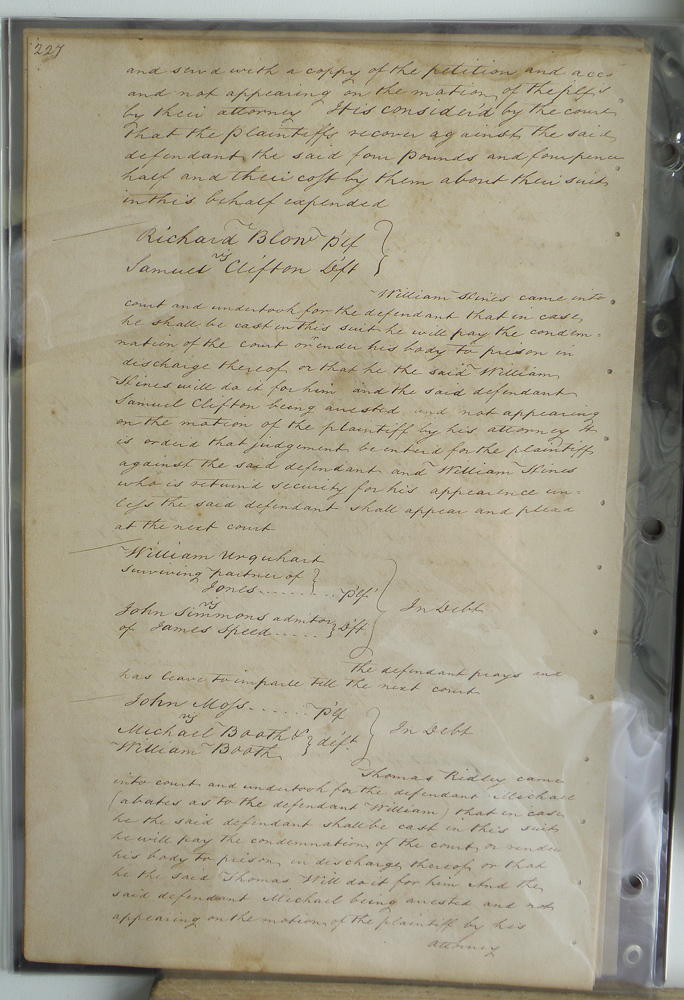 227
and servd with a coppy of the petition and acco
and not appearing on the motion of the plfs
by their attorney It is considerd by the court
that the plaintiffs recover against the said
defendant the said four pounds and four pence
half and their cost by them about their suit
in this behalf expended
Richard Blow plf
vs
Samuel Clifton Deft
William Hines came into
court and undertook for the defendant that in case
he shall be cast in this suit he will pay the condem=
nation of the court or render his body to prison in
discharge thereof or that he the said William
Hines will do it for him and the said defendant
Samuel Clifton being arrested and not appearing
on the motion of the plaintiff by his attorney It
is orderd that judgement be enterd for the plaintiff
against the said defendant and William Hines
who is returnd security for his appearence un-
less the said defendant shall appear and plead
at the next court
William Urquhart
surviving partner of
Jones .......... plf
vs
In Debt
John Simmons admitor
of James Speed ..... Dft
the defendant prays and
has leave to imparle till the next court
John Moss ...... plf
vs
Michael Booth &
William Booth deft
In Debt
Thomas Ridley came
into court and undertook for the defendant Michael
(abates as to the defendant William) that in case
he the said defendant shall be cast in this suit
he will pay the condemnation of the court or render
his body to prison in discharge thereof or that
he the said Thomas Will do it for him And the
said defendant Michael being arrested and not
appearing on the motion of the plaintiff by his
attorney